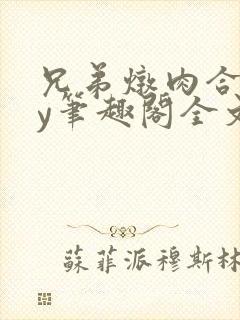 兄弟燉肉合
y筆趣閣全文
蘇菲派穆斯林